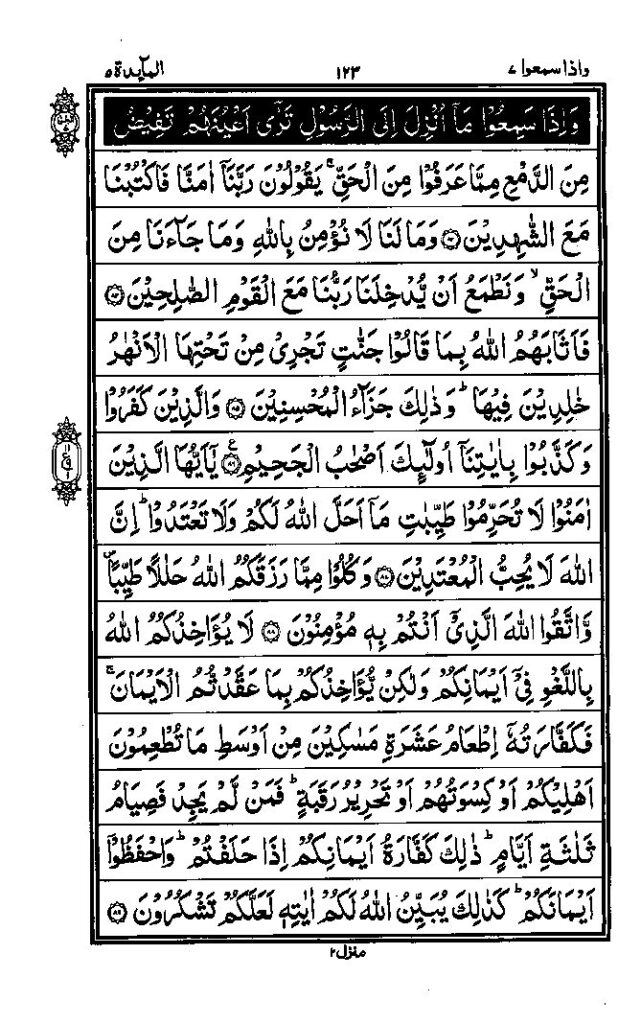 واذا سمعوا ۷ ۱۲۳ المآئدة ۵
وَاِذَا سَمِعُوْا مَاۤ اُنْزِلَ اِلَى الرَّسُوْلِ تَرٰۤى اَعْيُنَهُمْ تَفِيْضُ
مِنَ الدَّمْعِ مِمَّا عَرَفُوْا مِنَ الْحَقِّ ۚ يَقُوْلُوْنَ رَبَّنَاۤ اٰمَنَّا فَاكْتُبْنَا
مَعَ الشّٰهِدِيْنَ ۝۸۳ وَمَا لَنَا لَا نُؤْمِنُ بِاللّٰهِ وَمَا جَآءَنَا مِنَ
الْحَقِّ ۙ وَنَطْمَعُ اَنْ يُّدْخِلَنَا رَبُّنَا مَعَ الْقَوْمِ الصّٰلِحِيْنَ ۝۸۴
فَاَثَابَهُمُ اللّٰهُ بِمَا قَالُوْا جَنّٰتٍ تَجْرِيْ مِنْ تَحْتِهَا الْاَنْهٰرُ
خٰلِدِيْنَ فِيْهَا ؕ وَذٰلِكَ جَزَآءُ الْمُحْسِنِيْنَ ۝۸۵ وَالَّذِيْنَ كَفَرُوْا
وَكَذَّبُوْا بِاٰيٰتِنَاۤ اُولٰٓئِكَ اَصْحٰبُ الْجَحِيْمِ ۝۸۶ ع يٰۤاَيُّهَا الَّذِيْنَ
اٰمَنُوْا لَا تُحَرِّمُوْا طَيِّبٰتِ مَاۤ اَحَلَّ اللّٰهُ لَكُمْ وَلَا تَعْتَدُوْا ؕ اِنَّ
اللّٰهَ لَا يُحِبُّ الْمُعْتَدِيْنَ ۝۸۷ وَكُلُوْا مِمَّا رَزَقَكُمُ اللّٰهُ حَلٰلًا طَيِّبًا ۪
وَّاتَّقُوا اللّٰهَ الَّذِيْۤ اَنْتُمْ بِهٖ مُؤْمِنُوْنَ ۝۸۸ لَا يُؤَاخِذُكُمُ اللّٰهُ
بِاللَّغْوِ فِيْۤ اَيْمَانِكُمْ وَلٰكِنْ يُّؤَاخِذُكُمْ بِمَا عَقَّدْتُّمُ الْاَيْمَانَ ۚ
فَكَفَّارَتُهٗۤ اِطْعَامُ عَشَرَةِ مَسٰكِيْنَ مِنْ اَوْسَطِ مَا تُطْعِمُوْنَ
اَهْلِيْكُمْ اَوْ كِسْوَتُهُمْ اَوْ تَحْرِيْرُ رَقَبَةٍ ؕ فَمَنْ لَّمْ يَجِدْ فَصِيَامُ
ثَلٰثَةِ اَيَّامٍ ؕ ذٰلِكَ كَفَّارَةُ اَيْمَانِكُمْ اِذَا حَلَفْتُمْ ؕ وَاحْفَظُوْۤا
اَيْمَانَكُمْ ؕ كَذٰلِكَ يُبَيِّنُ اللّٰهُ لَكُمْ اٰيٰتِهٖ لَعَلَّكُمْ تَشْكُرُوْنَ ۝۸۹
منزل ۲